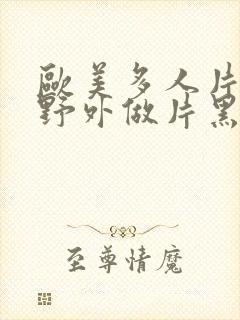 歐美多人片
野外做片黑
至尊情魔